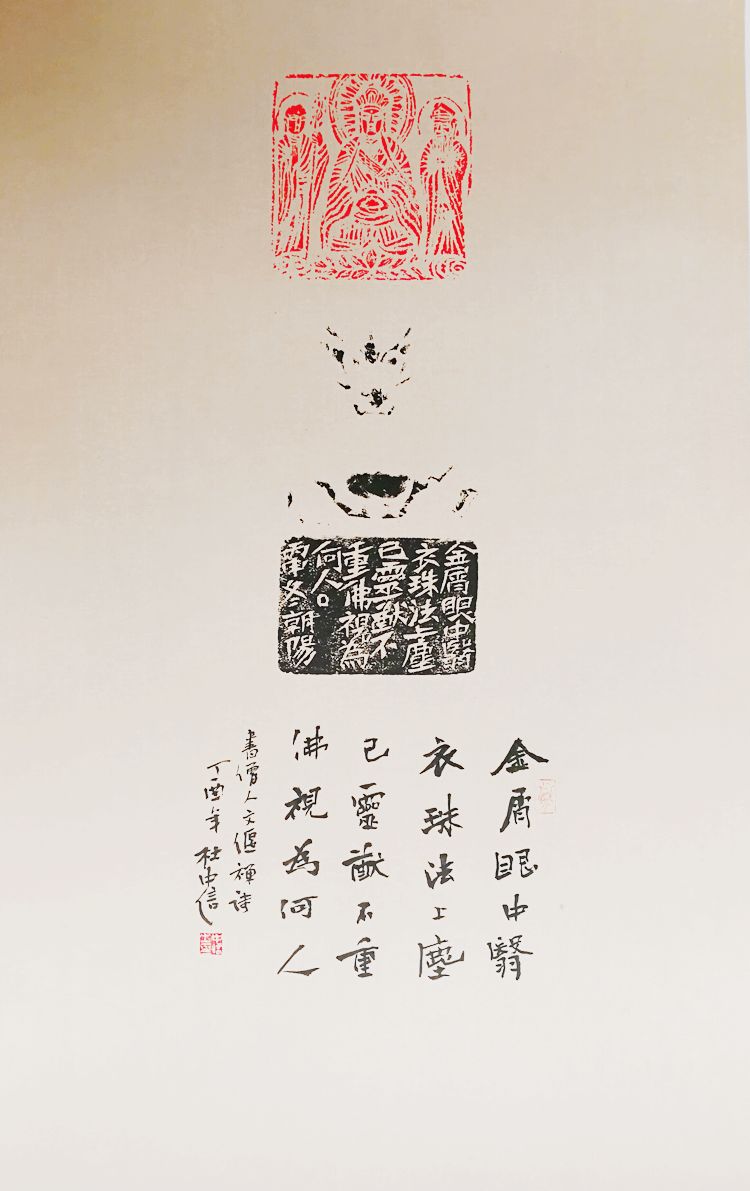 金屑眼中翳
衣珠法上塵
己靈猷不
重佛視為
何人。
冬朝陽
金屑眼中翳
衣珠法上塵
己靈猷不重
佛視為何人
書僧人文偃禪詩
丁酉年杜中信